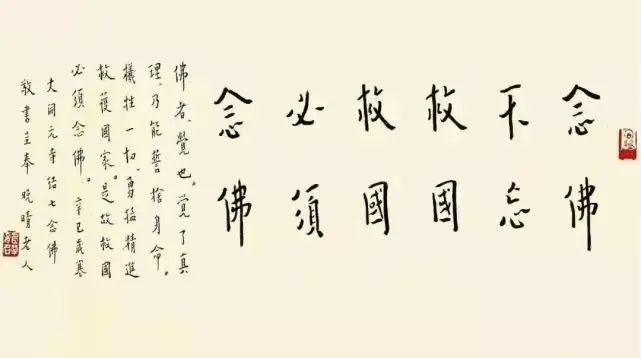 念佛
不忘
救國
救國
必須
念佛
佛者,覺也。覺了真
理,乃能誓捨身命。
犧牲一切,勇猛精進
救護國家。是故救國
必須念佛。 辛巳歲寒
大開元寺結七念佛
敬書呈奉 晚晴老人